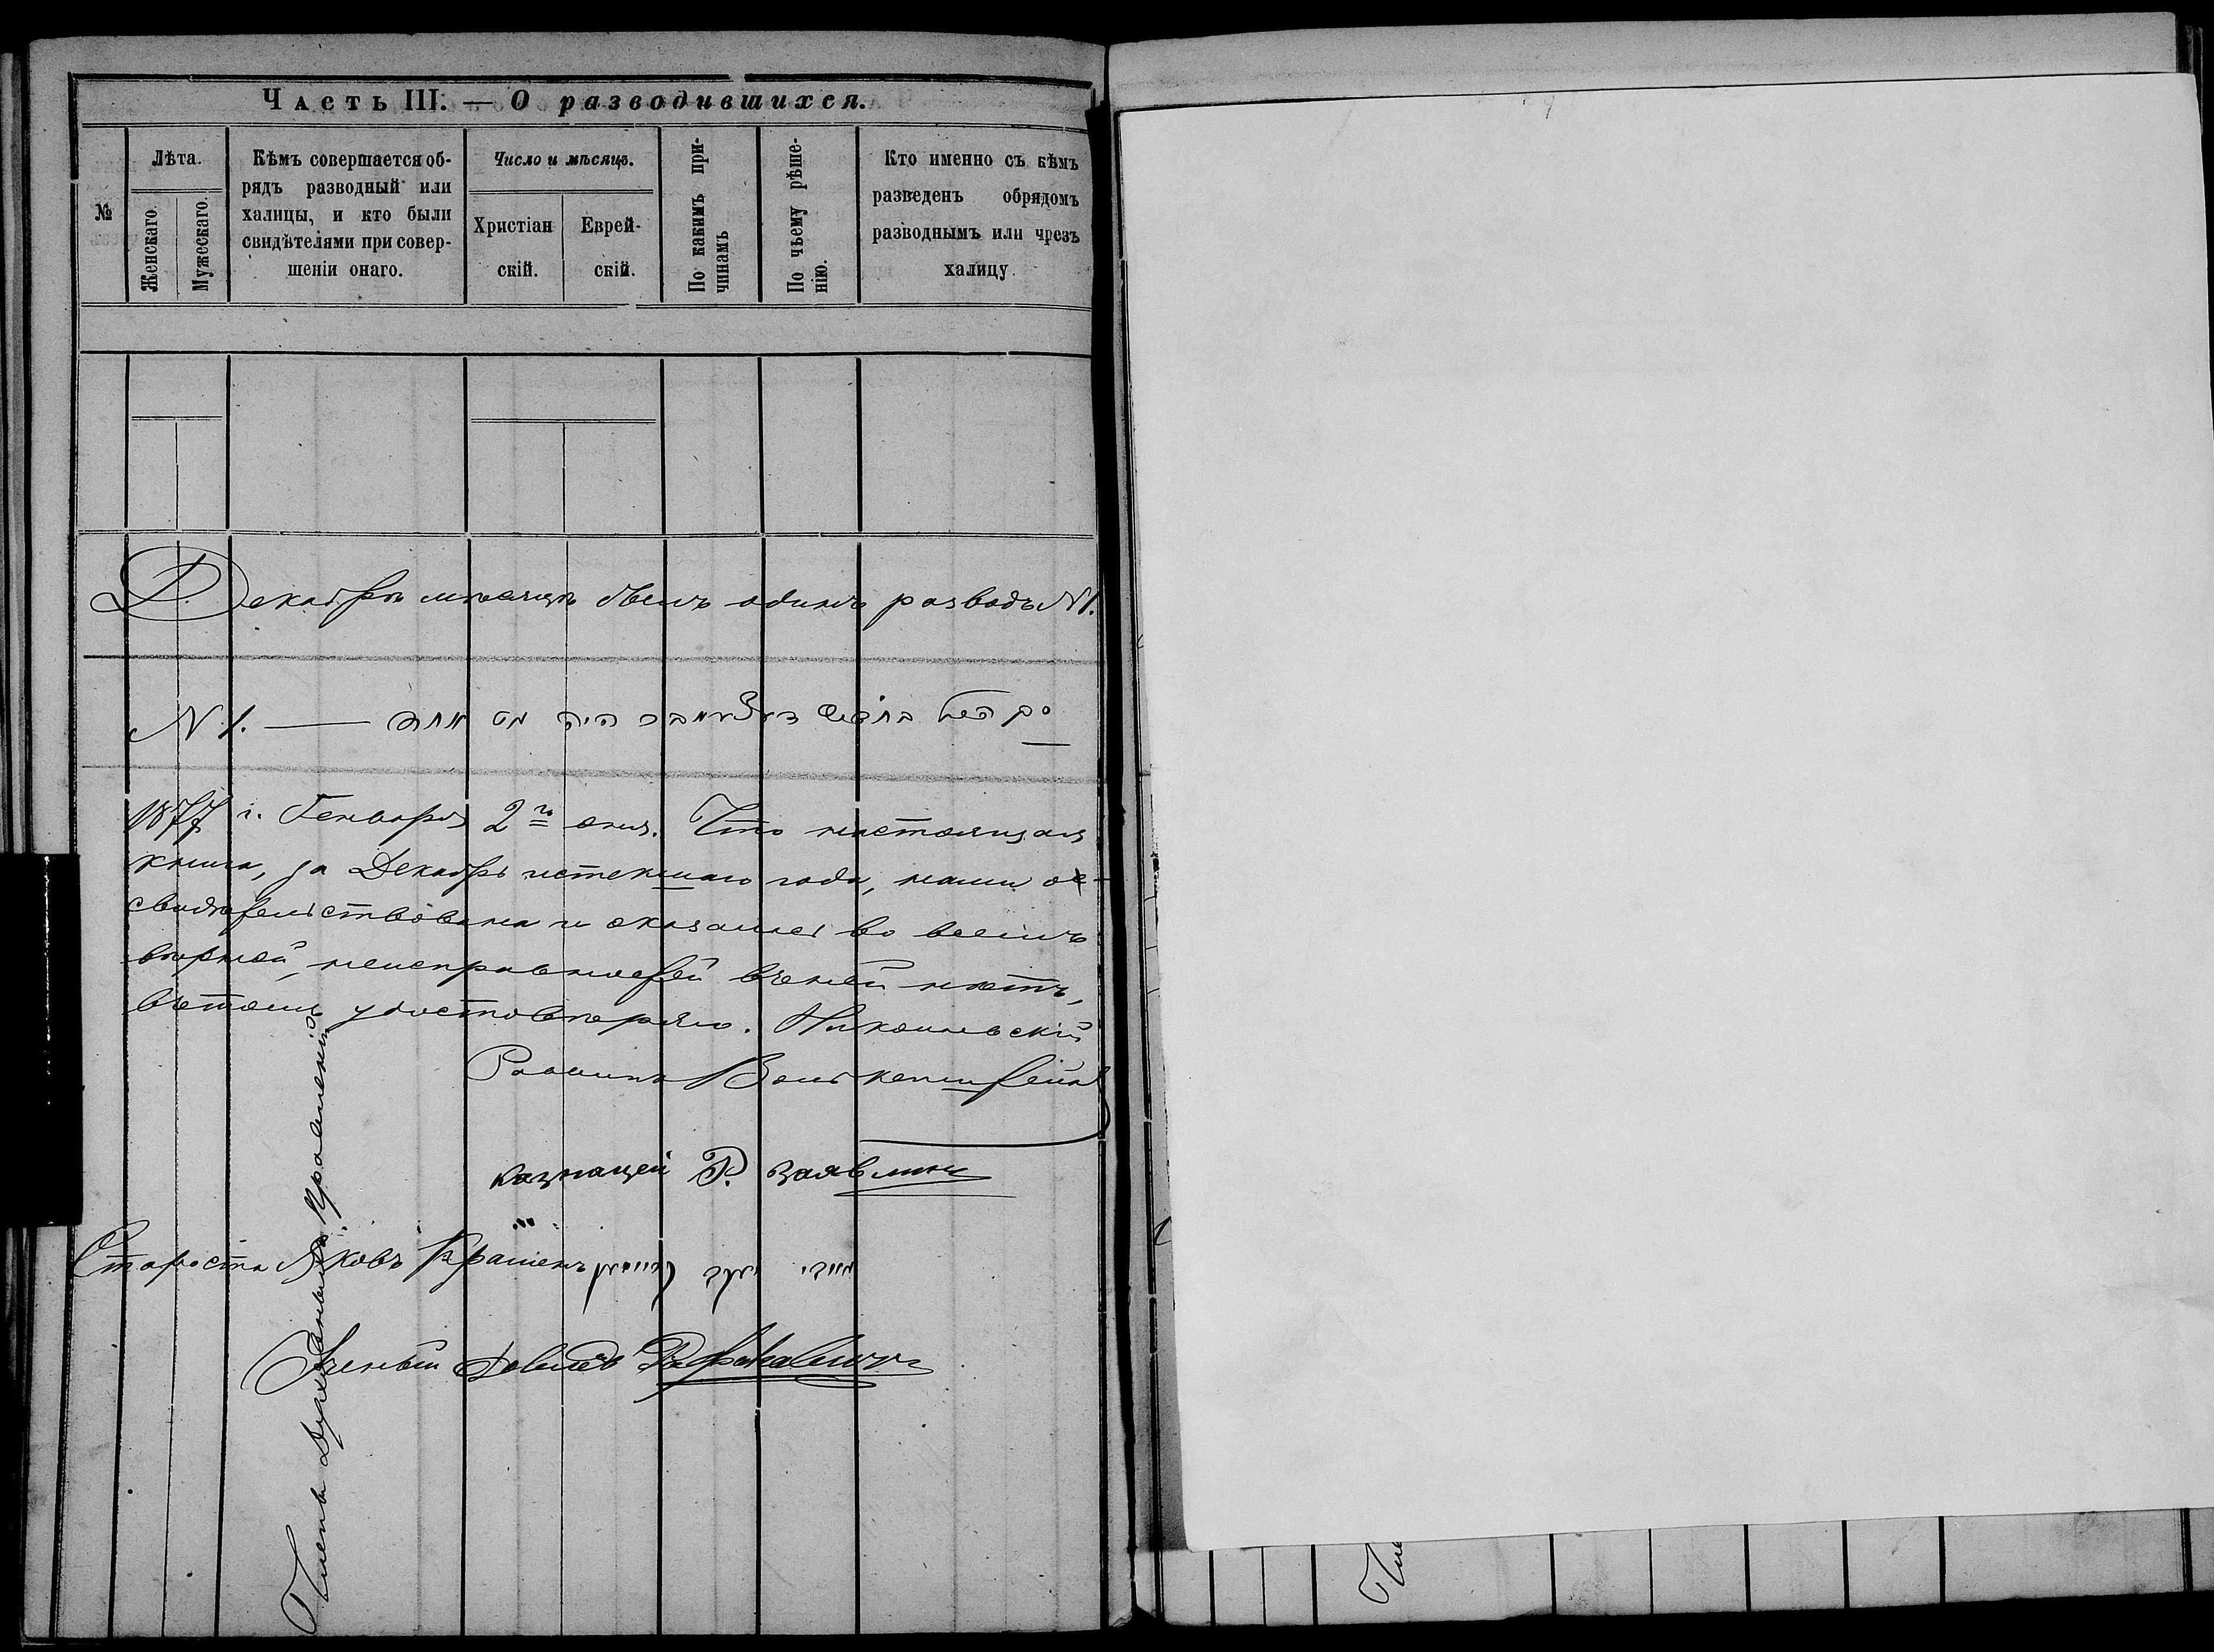 Часть III. — О разводившихся.
№
Лѣта.
Женскаго.
Мужескаго.
Кѣмъ совершается об-
рядъ разводный или
халицы, и кто были
свидѣтелями при совер-
шеніи онаго.
Число и мѣсяцъ.
Христіан
скій.
Еврей-
скій.
По какимъ при-
чинамъ
По чьему рѣше-
нію.
Кто именно съ кѣмъ
разведенъ обрядомъ
разводнымъ или чрезъ
халицу.
Декабрь мѣсяцъ былъ одинъ разводъ №1.
№ 1. — סך הכל בחדש דעצעמבר היה גט אחד
1877 г. Генваря 2го дня. Что настоящая
книга, за Декабрь истекшаго года, нами о-
свидѣтельствована и оказалась во всемъ
вѣрной, неисправностей въ ней нѣтъ,
въ томъ удостовѣряю.
Раввинъ
Казначей Р.
Староста Яковъ
Ученый Давидъ
Члены Духовныхъ Правленій